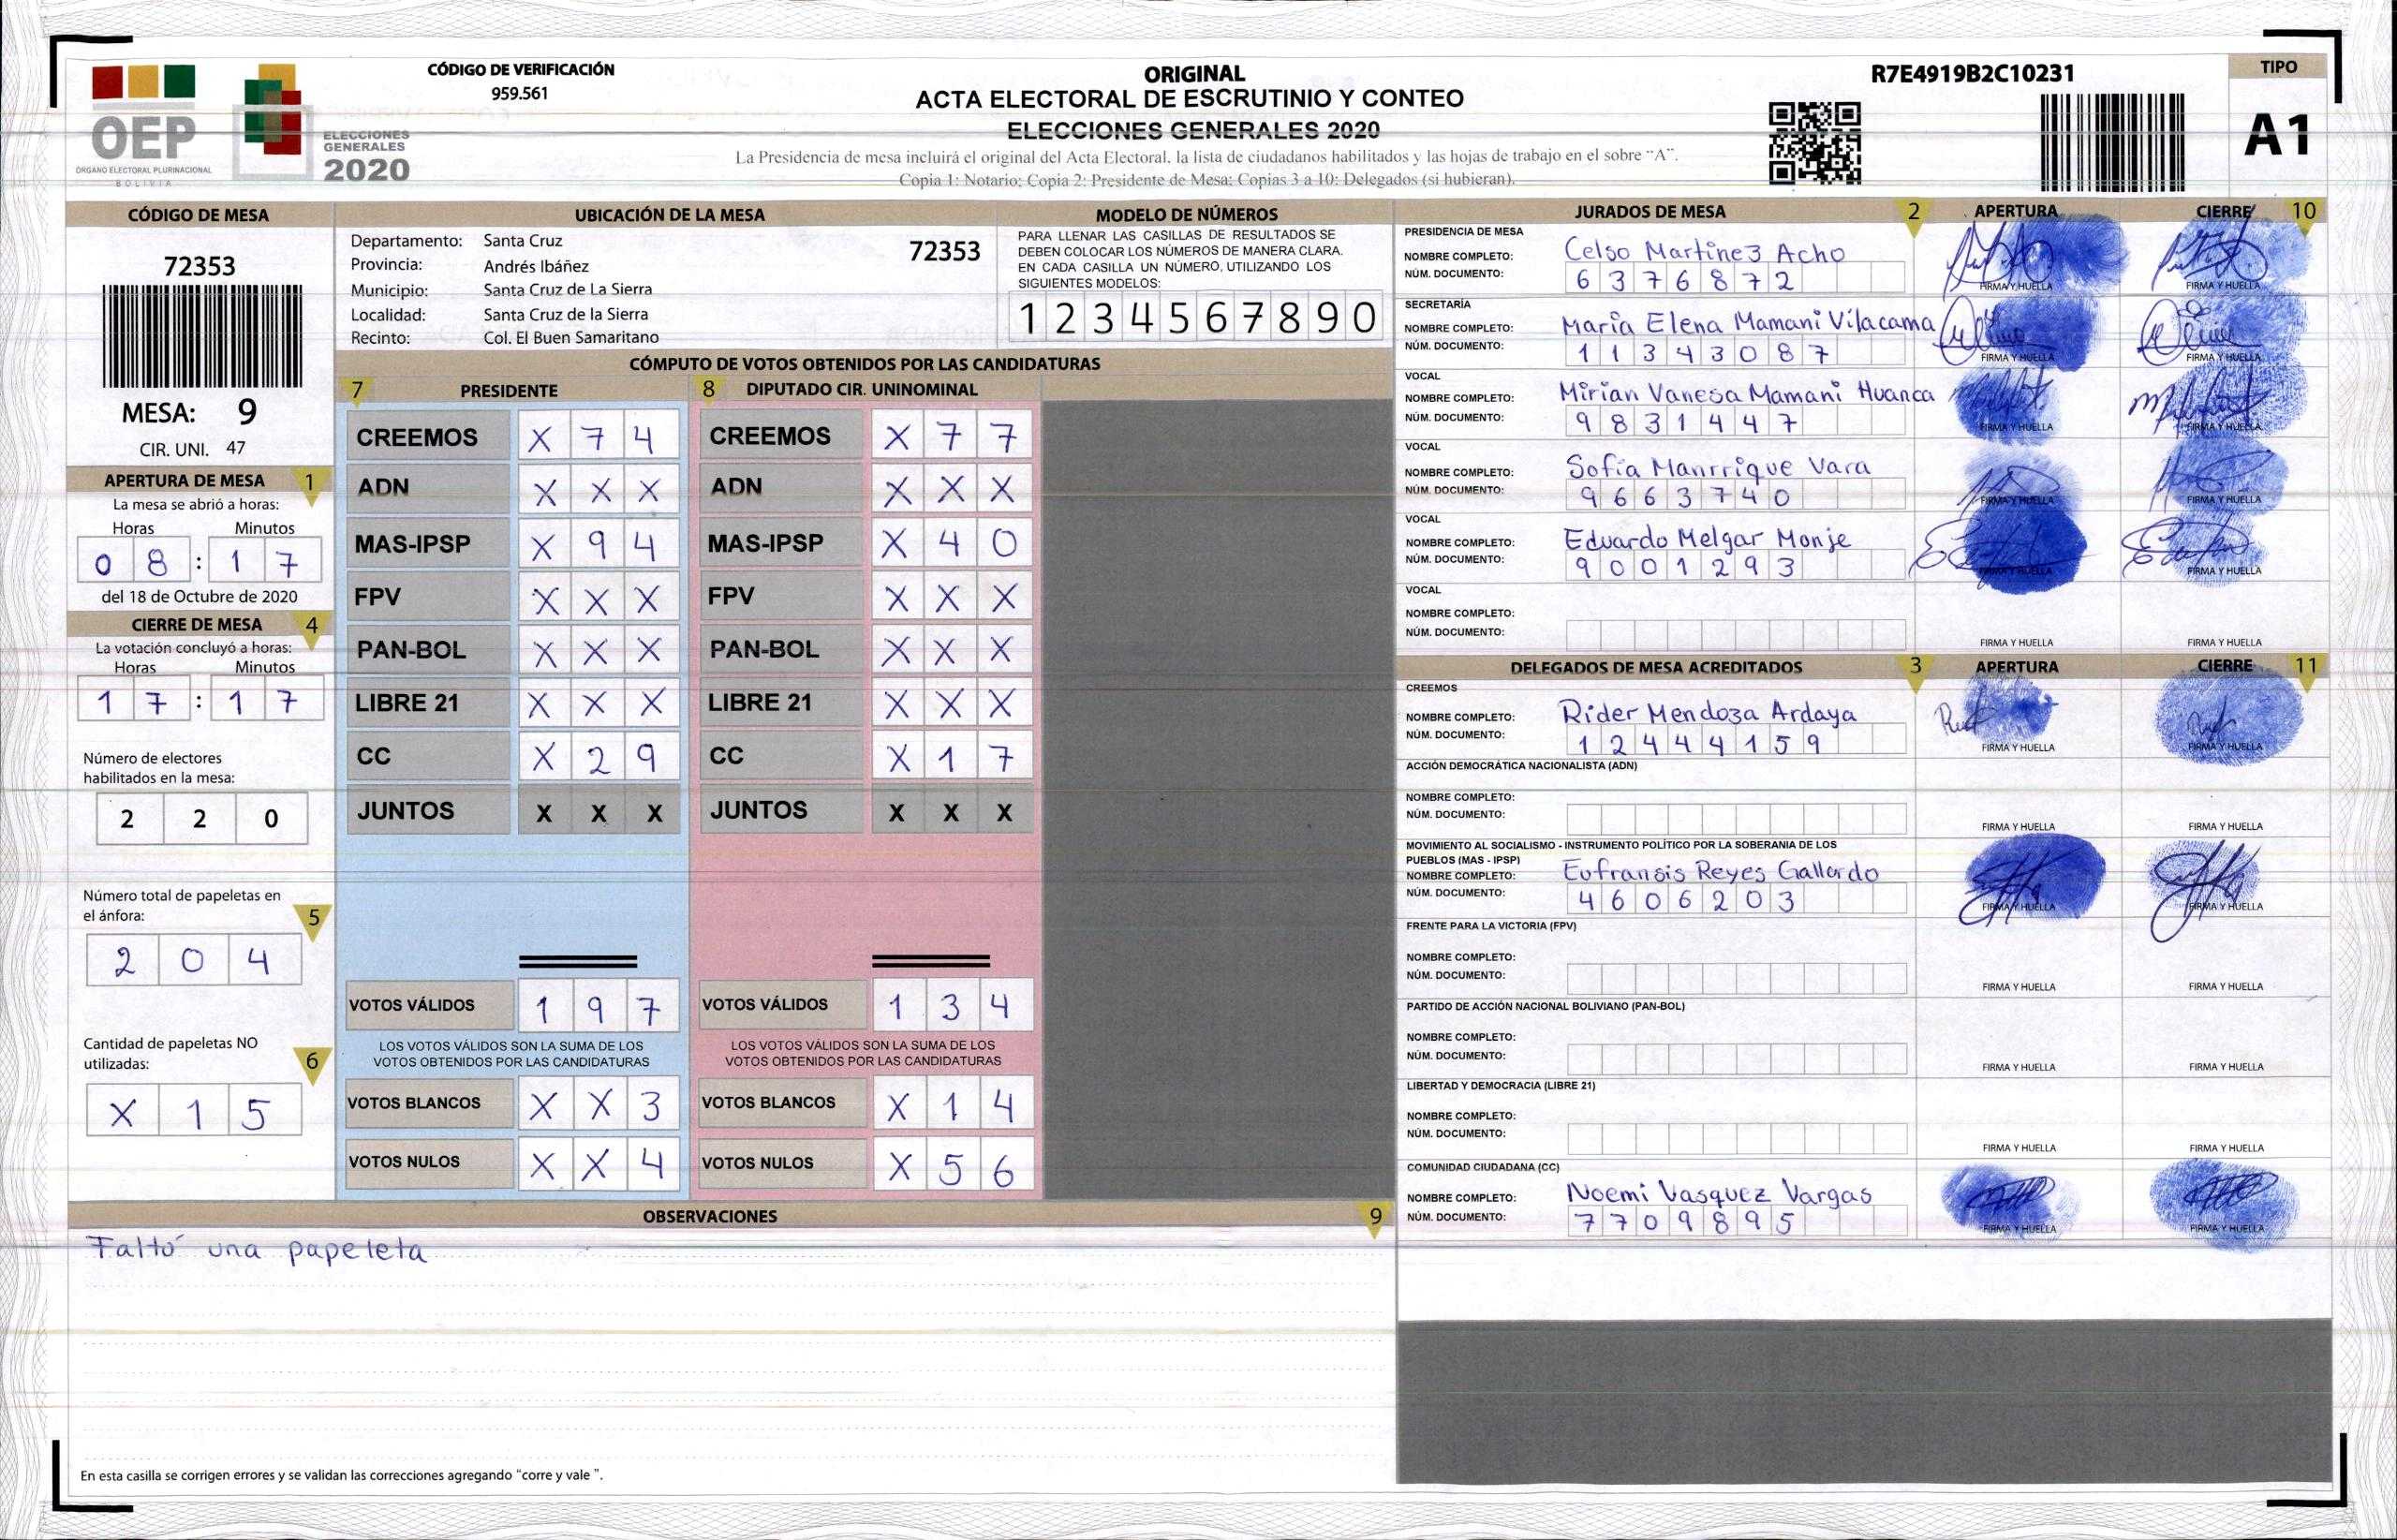 CÓDIGO DE VERIFICACIÓN
959.561
OEP
ÓRGANO ELECTORAL PLURINACIONAL
BOLIVIA
ELECCIONES
GENERALES
2020
ORIGINAL
ACTA ELECTORAL DE ESCRUTINIO Y CONTEO
ELECCIONES GENERALES 2020
La Presidencia de mesa incluirá el original del Acta Electoral, la lista de ciudadanos habilitados y las hojas de trabajo en el sobre "A".
Copia 1: Notario; Copia 2: Presidente de Mesa; Copias 3 a 10: Delegados (si hubieran).
R7E4919B2C10231
TIPO
A1
CÓDIGO DE MESA
72353
MESA: 9
CIR. UNI. 47
APERTURA DE MESA 1
La mesa se abrió a horas:
Horas Minutos
0 8 : 1 7
del 18 de Octubre de 2020
CIERRE DE MESA 4
La votación concluyó a horas:
Horas Minutos
1 7 : 1 7
Número de electores
habilitados en la mesa:
2 2 0
Número total de papeletas en
el ánfora: 5
2 0 4
Cantidad de papeletas NO
utilizadas: 6
X 1 5
UBICACIÓN DE LA MESA
Departamento: Santa Cruz 72353
Provincia: Andrés Ibáñez
Municipio: Santa Cruz de La Sierra
Localidad: Santa Cruz de la Sierra
Recinto: Col. El Buen Samaritano
MODELO DE NÚMEROS
PARA LLENAR LAS CASILLAS DE RESULTADOS SE
DEBEN COLOCAR LOS NÚMEROS DE MANERA CLARA.
EN CADA CASILLA UN NÚMERO, UTILIZANDO LOS
SIGUIENTES MODELOS:
1 2 3 4 5 6 7 8 9 0
CÓMPUTO DE VOTOS OBTENIDOS POR LAS CANDIDATURAS
7 PRESIDENTE
CREEMOS X 7 4
ADN X X X
MAS-IPSP X 9 4
FPV X X X
PAN-BOL X X X
LIBRE 21 X X X
CC X 2 9
JUNTOS X X X
VOTOS VÁLIDOS 1 9 7
LOS VOTOS VÁLIDOS SON LA SUMA DE LOS
VOTOS OBTENIDOS POR LAS CANDIDATURAS
VOTOS BLANCOS X X 3
VOTOS NULOS X X 4
8 DIPUTADO CIR. UNINOMINAL
CREEMOS X 7 7
ADN X X X
MAS-IPSP X 4 0
FPV X X X
PAN-BOL X X X
LIBRE 21 X X X
CC X 1 7
JUNTOS X X X
VOTOS VÁLIDOS 1 3 4
LOS VOTOS VÁLIDOS SON LA SUMA DE LOS
VOTOS OBTENIDOS POR LAS CANDIDATURAS
VOTOS BLANCOS X 1 4
VOTOS NULOS X 5 6
OBSERVACIONES 9
Faltó una papeleta
En esta casilla se corrigen errores y se validan las correcciones agregando "corre y vale ".
JURADOS DE MESA 2 APERTURA CIERRE 10
PRESIDENCIA DE MESA
NOMBRE COMPLETO: Celso Martinez Acho
NÚM. DOCUMENTO: 6 3 7 6 8 7 2 FIRMA Y HUELLA FIRMA Y HUELLA
SECRETARÍA
NOMBRE COMPLETO: Maria Elena Mamani Vilacama
NÚM. DOCUMENTO: 1 1 3 4 3 0 8 7 FIRMA Y HUELLA FIRMA Y HUELLA
VOCAL
NOMBRE COMPLETO: Mirian Vanesa Mamani Huanca
NÚM. DOCUMENTO: 9 8 3 1 4 4 7 FIRMA Y HUELLA FIRMA Y HUELLA
VOCAL
NOMBRE COMPLETO: Sofia Manrrique Vara
NÚM. DOCUMENTO: 9 6 6 3 7 4 0 FIRMA Y HUELLA FIRMA Y HUELLA
VOCAL
NOMBRE COMPLETO: Eduardo Melgar Monje
NÚM. DOCUMENTO: 9 0 0 1 2 9 3 FIRMA Y HUELLA FIRMA Y HUELLA
VOCAL
NOMBRE COMPLETO:
NÚM. DOCUMENTO: FIRMA Y HUELLA FIRMA Y HUELLA
DELEGADOS DE MESA ACREDITADOS 3 APERTURA CIERRE 11
CREEMOS
NOMBRE COMPLETO: Rider Mendoza Ardaya
NÚM. DOCUMENTO: 1 2 4 4 4 1 5 9 FIRMA Y HUELLA FIRMA Y HUELLA
ACCIÓN DEMOCRÁTICA NACIONALISTA (ADN)
NOMBRE COMPLETO:
NÚM. DOCUMENTO: FIRMA Y HUELLA FIRMA Y HUELLA
MOVIMIENTO AL SOCIALISMO - INSTRUMENTO POLÍTICO POR LA SOBERANIA DE LOS
PUEBLOS (MAS - IPSP)
NOMBRE COMPLETO: Eufransis Reyes Gallardo
NÚM. DOCUMENTO: 4 6 0 6 2 0 3 FIRMA Y HUELLA FIRMA Y HUELLA
FRENTE PARA LA VICTORIA (FPV)
NOMBRE COMPLETO:
NÚM. DOCUMENTO: FIRMA Y HUELLA FIRMA Y HUELLA
PARTIDO DE ACCIÓN NACIONAL BOLIVIANO (PAN-BOL)
NOMBRE COMPLETO:
NÚM. DOCUMENTO: FIRMA Y HUELLA FIRMA Y HUELLA
LIBERTAD Y DEMOCRACIA (LIBRE 21)
NOMBRE COMPLETO:
NÚM. DOCUMENTO: FIRMA Y HUELLA FIRMA Y HUELLA
COMUNIDAD CIUDADANA (CC)
NOMBRE COMPLETO: Noemi Vasquez Vargas
NÚM. DOCUMENTO: 7 7 0 9 8 9 5 FIRMA Y HUELLA FIRMA Y HUELLA